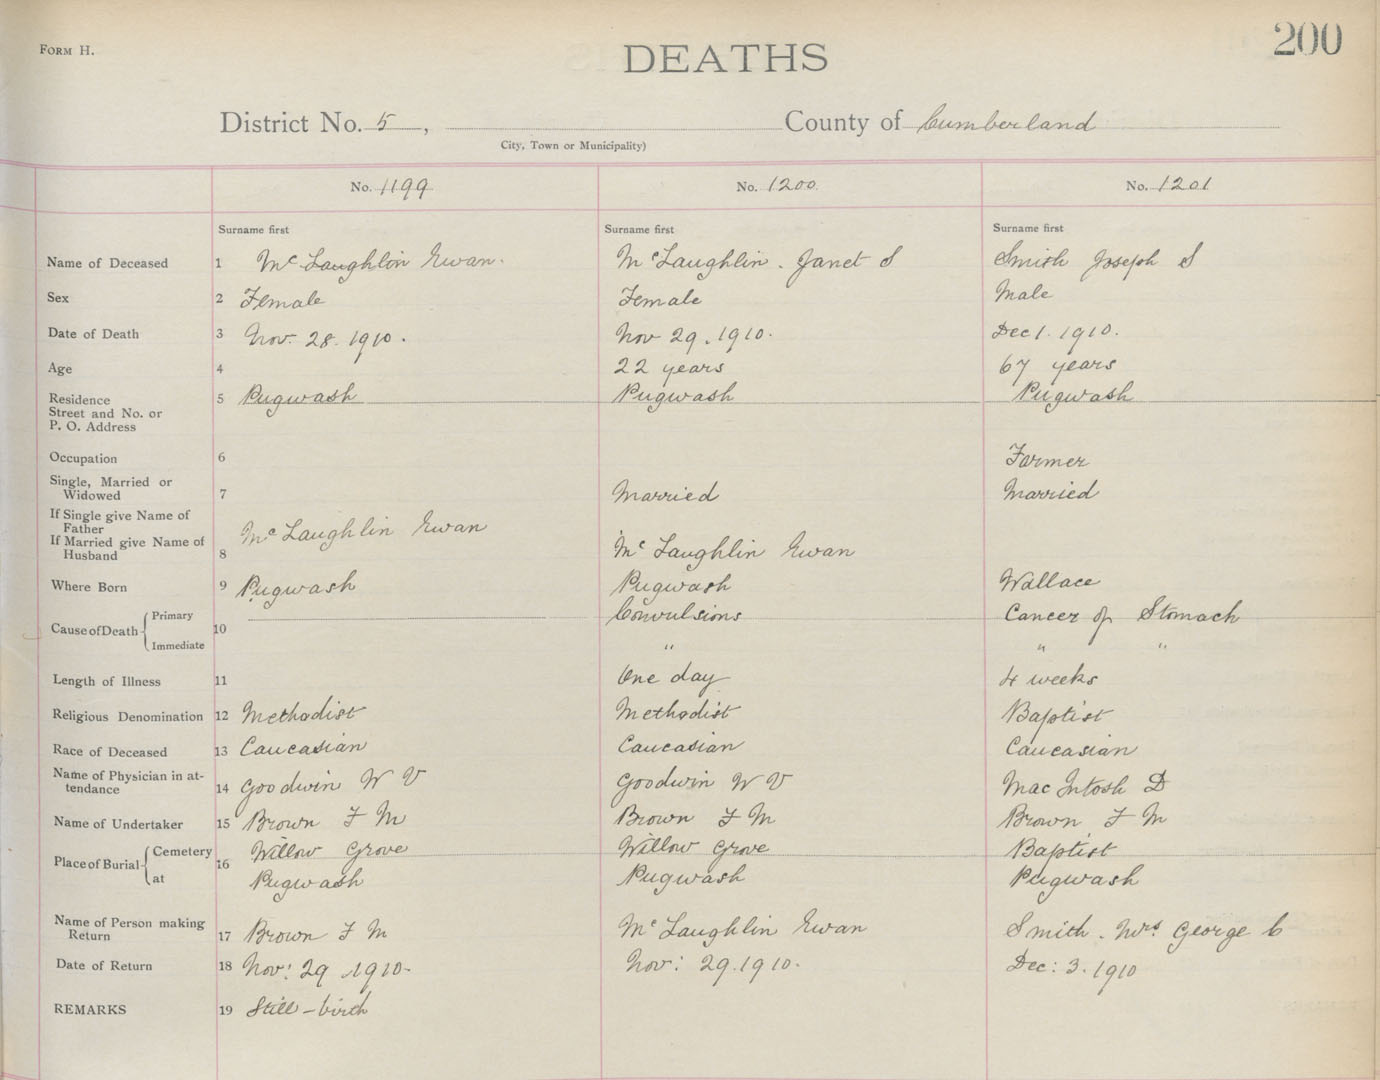 FORM H.
DEATHS
200
District No. 5, County of Cumberland
City, Town or Municipality)
No. 1199 No. 1200 No. 1201
Surname first Surname first Surname first
Name of Deceased 1 McLaughlon Ewan. McLaughlin. Janet S Smith Joseph S
Sex 2 Female Female Male
Date of Death 3 Nov. 28. 1910. Nov 29. 1910. Dec 1. 1910.
Age 4 22 years 67 years
Residence 5 Pugwash Pugwash Pugwash
Street and No. or
P. O. Address
Occupation 6 Farmer
Single, Married or
Widowed 7 Married Married
If Single give Name of
Father
If Married give Name of
Husband 8 McLaughlin Ewan McLaughlin Ewan
Where Born 9 Pugwash Pugwash Wallace
Cause of Death 10 Primary Convulsions Cancer of Stomach
Immediate " " "
Length of Illness 11 One day 4 weeks
Religious Denomination 12 Methodist Methodist Baptist
Race of Deceased 13 Caucasian Caucasian Caucasian
Name of Physician in at-
tendance 14 Goodwin W V Goodwin W V MacIntosh D
Name of Undertaker 15 Brown F M Brown F M Brown F M
Place of Burial 16 Cemetery Willow Grove Willow Grove Baptist
at Pugwash Pugwash Pugwash
Name of Person making
Return 17 Brown F M McLaughlin Ewan Smith. Mrs. George C
Date of Return 18 Nov: 29. 1910. Nov: 29. 1910. Dec: 3. 1910
REMARKS 19 Still-birth